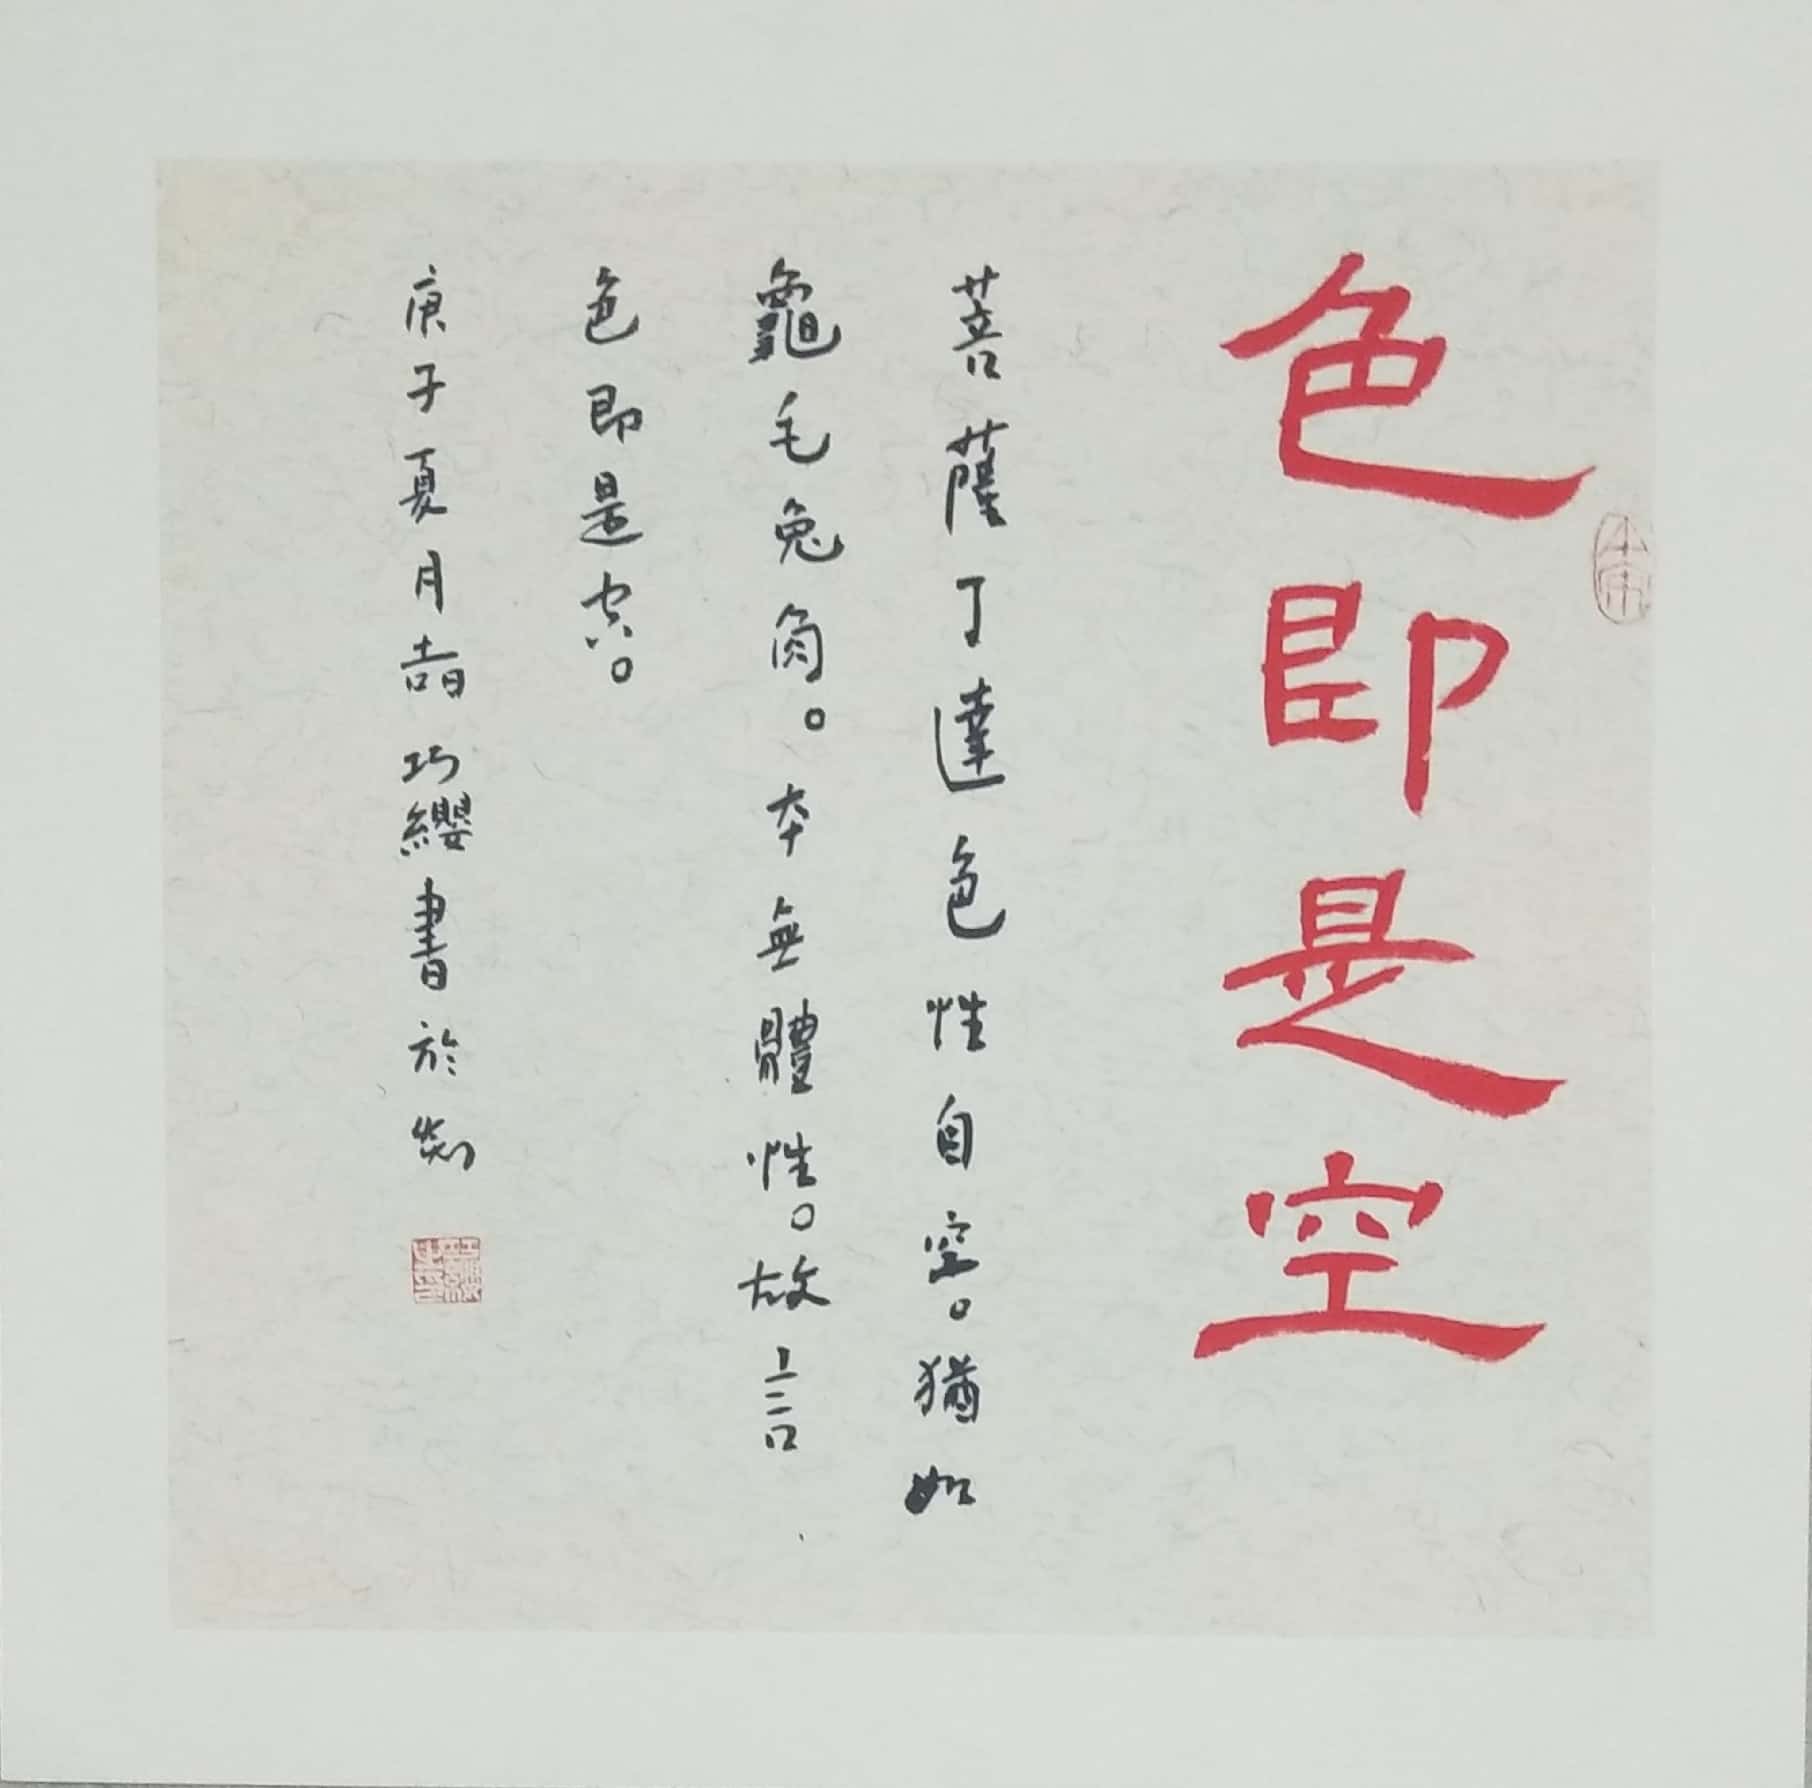 色即是空
菩薩了達色性自空。猶如
龜毛兔角。本無體性。故言
色即是空。
庚子夏月喆巧纓書於